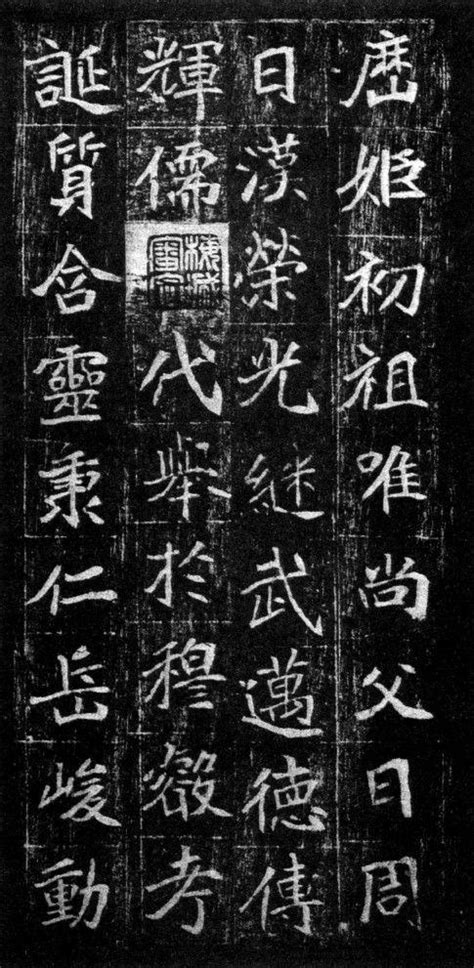 歷姬初祖唯尚父曰周
曰漢榮光継武邁德傳
輝儒代舉於穆考
誕質含靈秉仁岳峻動